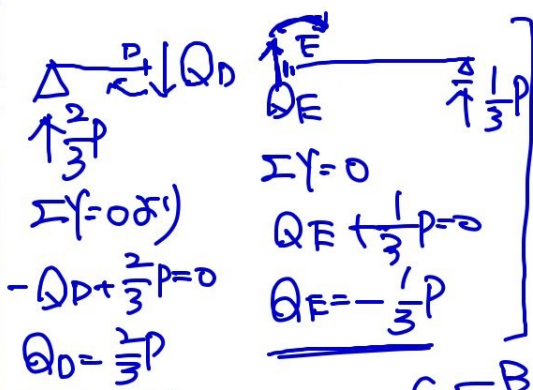 D
Q_D
2/3 P
ΣY=0より
-Q_D+2/3 P=0
Q_D=2/3 P
E
Q_E
1/3 P
ΣY=0
Q_E+1/3 P=0
Q_E=-1/3 P
B